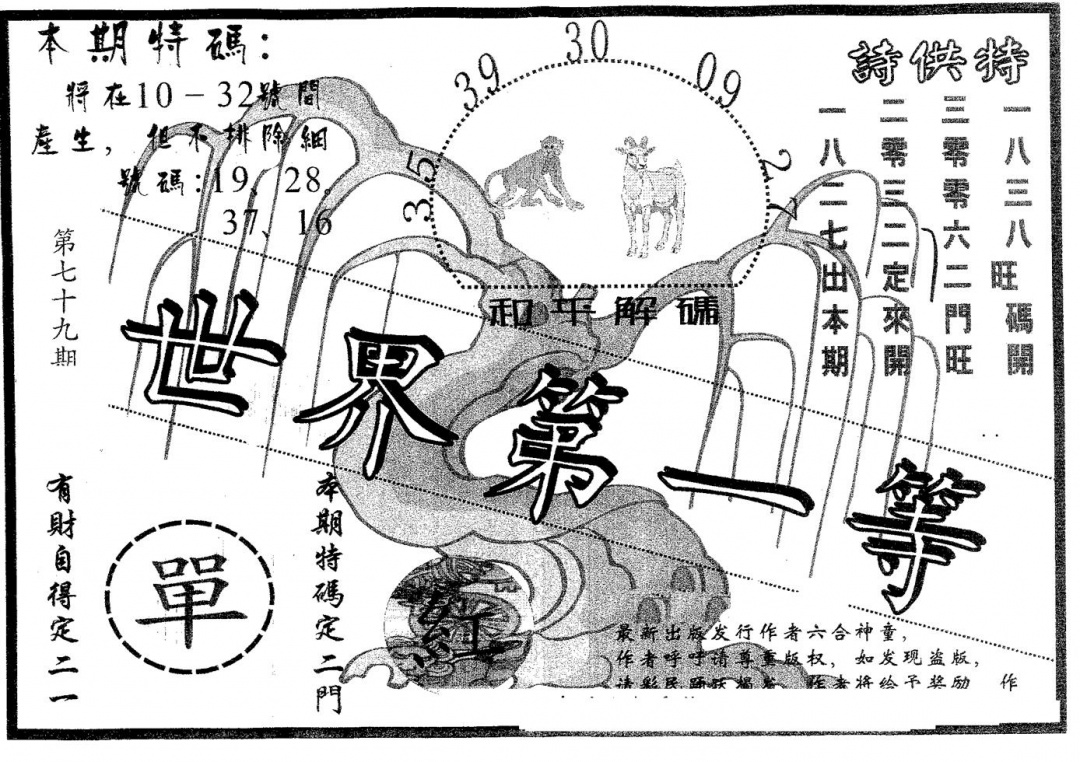 本期特碼:
將在10－32號間
產生，但不排除細
號碼:19、28。
37、16
第七十九期
35 39 30 09 27
和平解碼
特供詩
一八三八旺碼開
三零零六二門旺
二零三二定來開
一八二七出本期
世界第一等
有財自得定二一
單
本期特碼定二門
紅
最新出版发行作者六合神童，
作者呼吁请尊重版权，如发现盗版，
请彩民踊跃揭发 作者将给予奖励 作